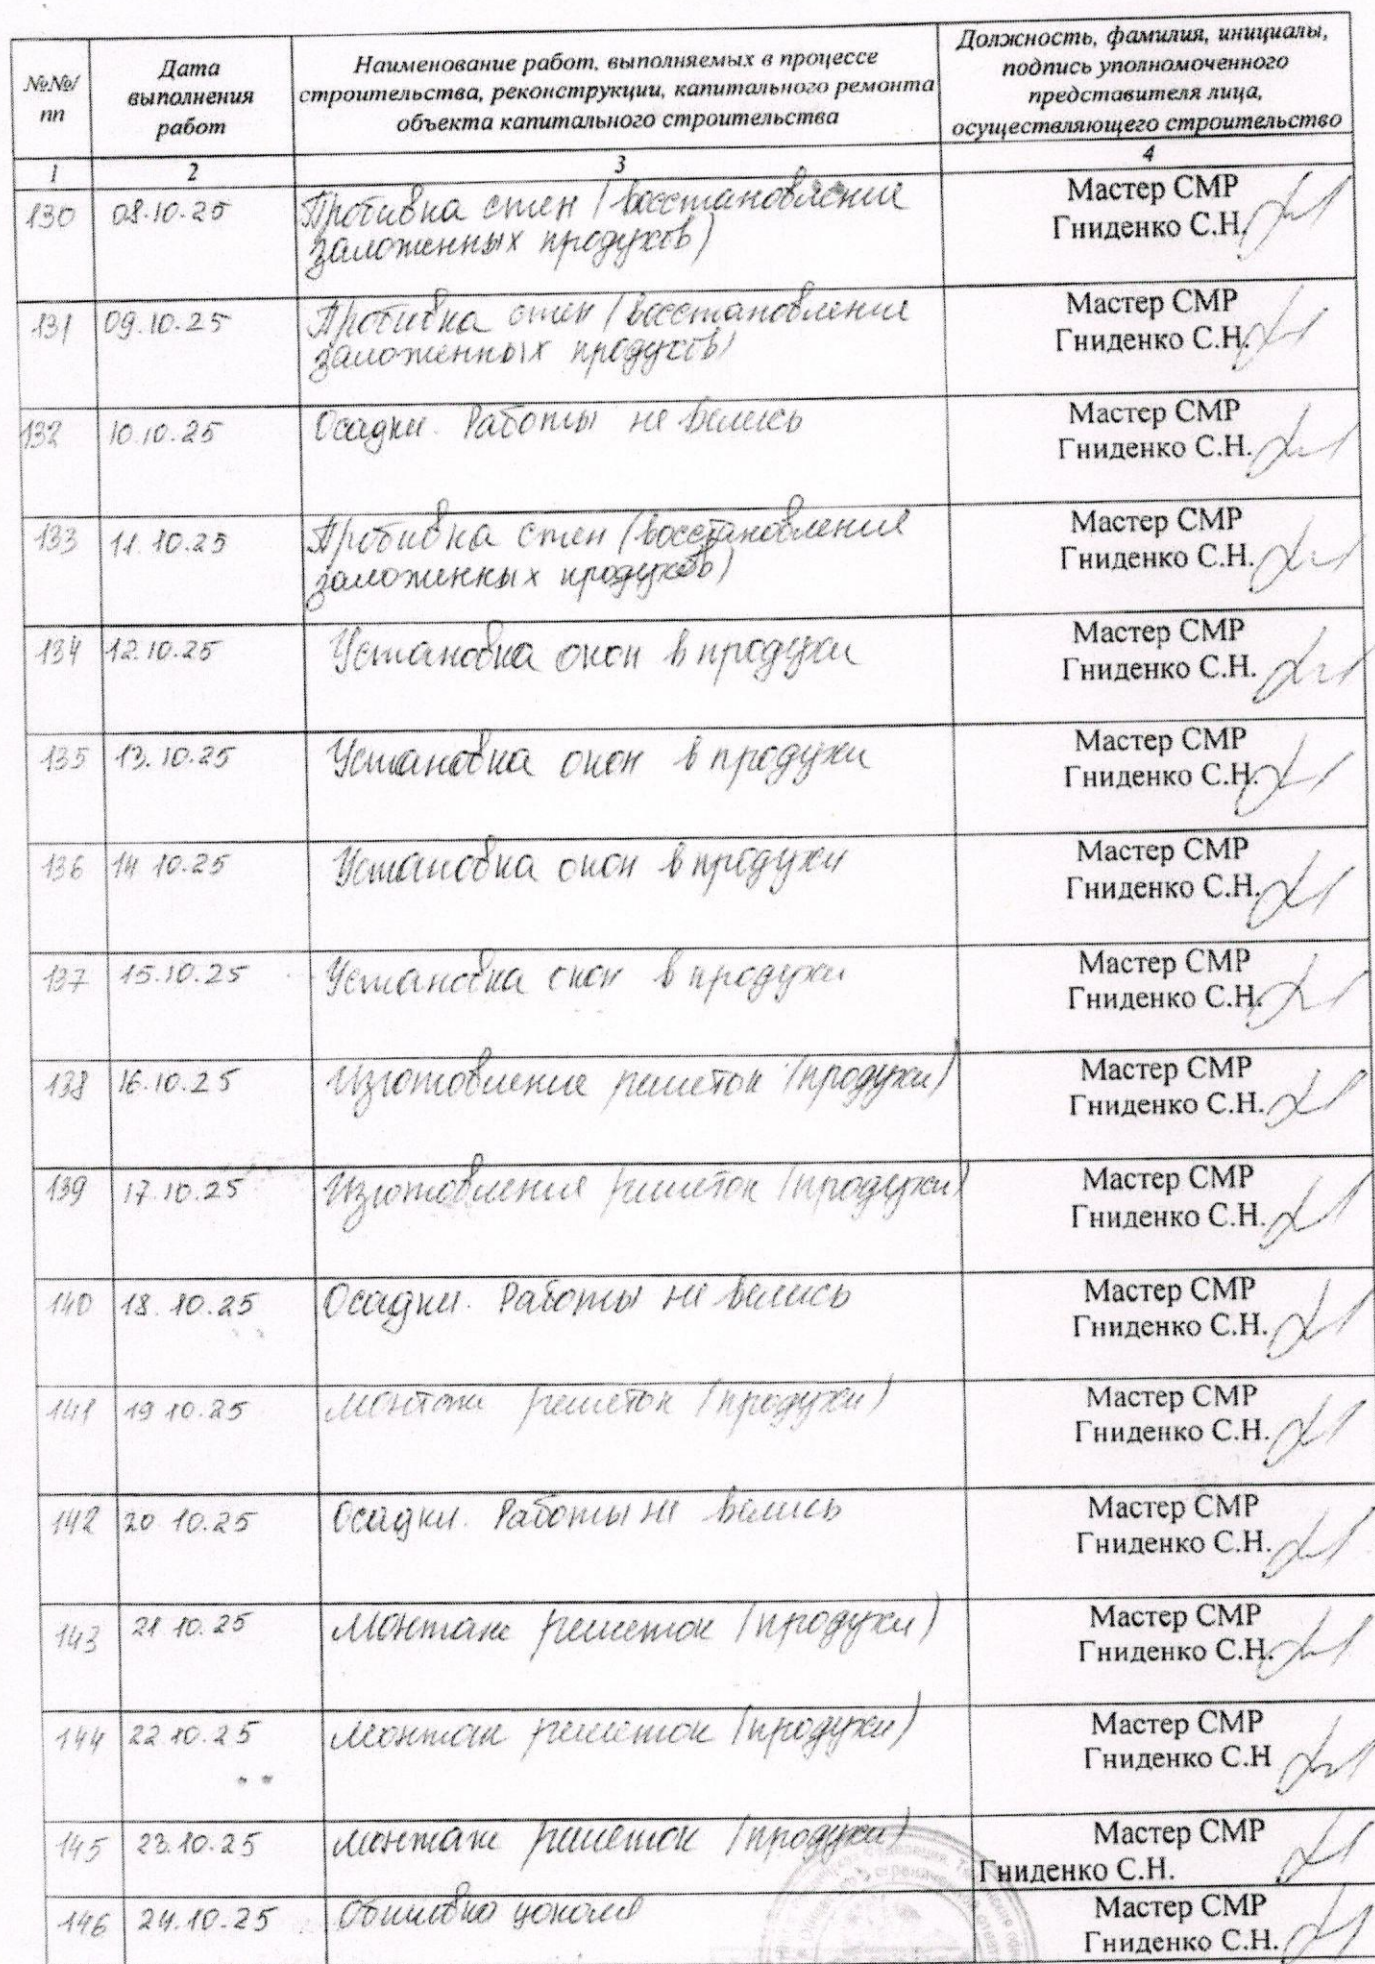 №№/
пп
Дата
выполнения
работ
Наименование работ, выполняемых в процессе
строительства, реконструкции, капитального ремонта
объекта капитального строительства
Должность, фамилия, инициалы,
подпись уполномоченного
представителя лица,
осуществляющего строительство
1 2 3 4
130 08.10.25 Пробивка стен (восстановление
заложенных продухов)
Мастер СМР
Гниденко С.Н.
131 09.10.25 Пробивка стен (восстановление
заложенных продухов)
Мастер СМР
Гниденко С.Н.
132 10.10.25 Осадки. Работы не велись
Мастер СМР
Гниденко С.Н.
133 11.10.25 Пробивка стен (восстановления
заложенных продухов)
Мастер СМР
Гниденко С.Н.
134 12.10.25 Установка окон в продухи
Мастер СМР
Гниденко С.Н.
135 13.10.25 Установка окон в продухи
Мастер СМР
Гниденко С.Н.
136 14 10.25 Установка окон в продухи
Мастер СМР
Гниденко С.Н.
137 15.10.25 Установка окон в продухи
Мастер СМР
Гниденко С.Н.
138 16.10.25 Изготовление решеток (продухи)
Мастер СМР
Гниденко С.Н.
139 17.10.25 Изготовления решеток (продухи)
Мастер СМР
Гниденко С.Н.
140 18.10.25 Осадки. Работы не велись
Мастер СМР
Гниденко С.Н.
141 19 10.25 Монтаж решеток (продухи)
Мастер СМР
Гниденко С.Н.
142 20 10.25 Осадки. Работы не велись
Мастер СМР
Гниденко С.Н.
143 21 10.25 Монтаж решеток (продухи)
Мастер СМР
Гниденко С.Н.
144 22.10.25 Монтаж решеток (продухи)
Мастер СМР
Гниденко С.Н
145 23.10.25 Монтаж решеток (продухи)
Мастер СМР
Гниденко С.Н.
146 24.10.25 Обшивка цоколя
Мастер СМР
Гниденко С.Н.